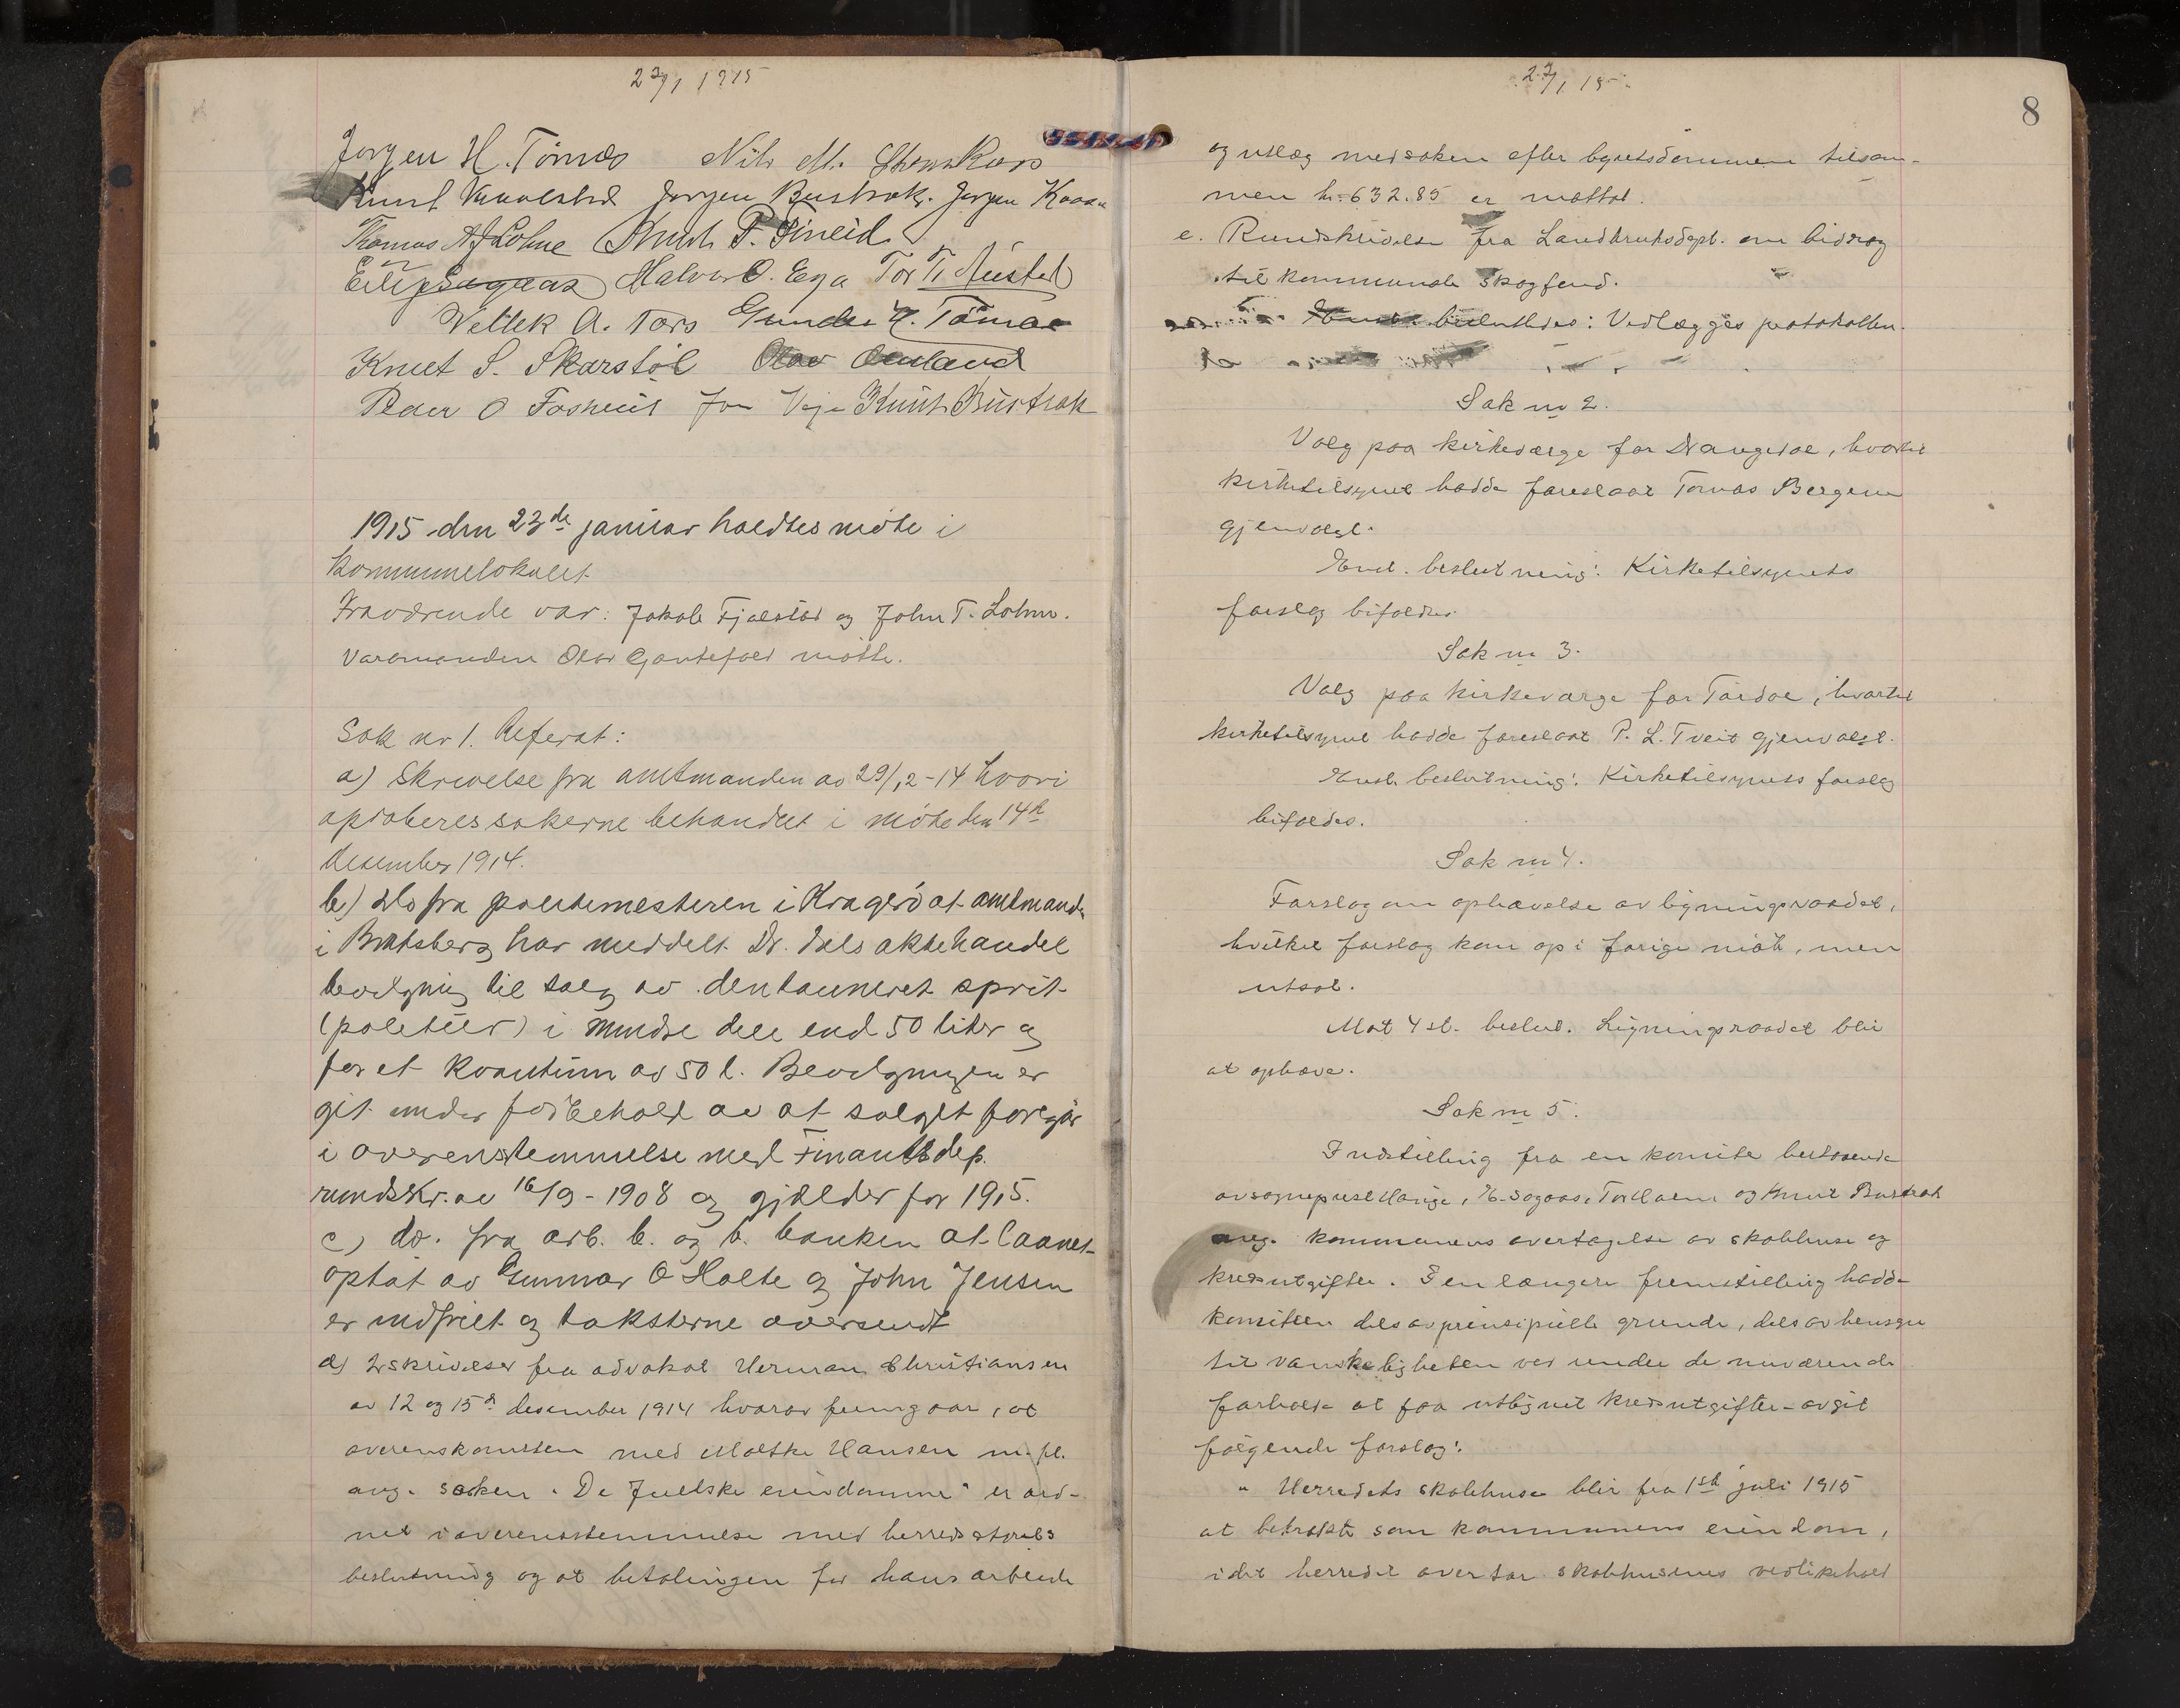 23/1 1915
Jørgen H. Tørnes Nils M.
Knut Jørgen Bustrak. Jørgen
Thomas A Lohne Knut P. Fineid
Eilif Sagaas Halvor O. Ega Tor T.
Vettek A. Tors Gunder H. Tørnes
Knut S. Skarstøl Olav Omland
Peder O Fosheim Jon Veje Knut Bustrak
1915 den 23de januar holdtes møte i
kommunelokalet.
Fraværende var: Jakob Fjalestad og John T. Lohne.
Varamanden Olav Gautefald møtte.
Sak nr 1. Referat:
a) Skrivelse fra amtmanden av 29/12-14 hvori
aproberes sakerne behandlet i møte den 14de
desember 1914.
b) Do fra politimesteren i Kragerø at amtmanden
i Bratsberg har meddelt Dr. dals aktiehandel
bevilgning til salg av denaturert sprit
(politur) i mindre dele end 50 liter og
for et kvantum av 50 l. Bevilgningen er
git under forbehold av at salget foregår
i overenstemmelse med Finantsdep.
rundskr. av 16/9-1908 og gjælder for 1915.
c) do. fra arb. b. og b. banken at laanet
optat av Gunnar O Holte og John Jensen
er indfriet og taksterne oversendt
d) 2 skrivelser fra advokat Herman Christiansen
av 12 og 15de desember 1914 hvorav fremgaar, at
overenskomsten med Moltke Hansen m. fl.
ang. saken "De Juelske eiendomme" er ord-
net i overensstemmelse med herredsstyrets
beslutning og at betalingen for hans arbeide
23/1 15.
8
og utlæg med saken efter byretsdommen tilsam-
men kr. 632.85 er mottat.
e. Rundskrivelse fra Landbruksdept. om bidrag
til kommunale skogfond.
besluttedes: Vedlægges protokollen.
Sak nr 2.
Valg paa kirkeværge for Drangedal, hvortil
kirketilsynet hadde foreslaat Tomas Bergene
gjenvalgt.
Enst. beslutning: Kirketilsynets
forslag bifaldtes.
Sak nr 3.
Valg paa kirkeværge for Tørdal, hvortil
kirketilsynet hadde foreslaat P. L. Tveit gjenvalgt.
Enst. beslutning: Kirketilsynets forslag
bifaldes.
Sak nr 4.
Forslag om ophævelse av ligningsraadet,
hvilket forslag kom op i forrige møte, men
utsat.
Mot 4 st. beslut. Ligningsraadet blir
at ophæve.
Sak nr 5.
Indstilling fra en komite bestaaende
av sogneprest Hauge, E. Sagaas, Tor og Knut Bustrak
ang. kommunens overtagelse av skolehuse og
kredsutgifter. I en længere fremstilling hadde
komiteen dels av prinsipielle grunde, dels av hensyn
til vanskeligheten ved under de nuværende
forholde at faa utlignet kredsutgifter - avgit
følgende forslag:
" Herredets skolehuse blir fra 1ste juli 1915
at betrakte som kommunens eiendom,
idet herredet overtar skolehusenes vedlikehold